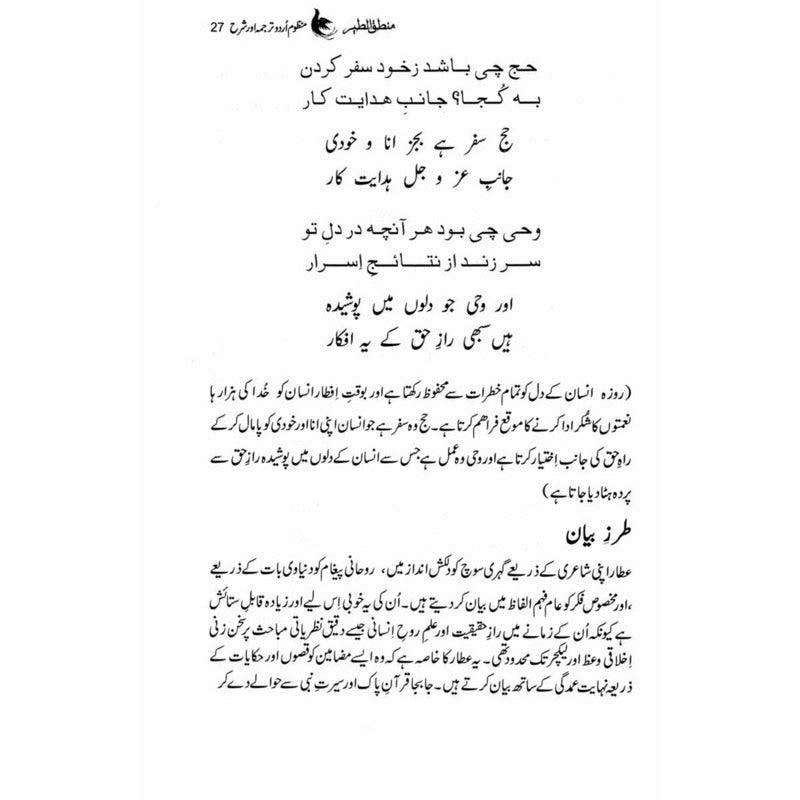 منطق الطیر منظوم اُردو ترجمہ اور شرح 27
حج چی باشد زخود سفر کردن
به کُجا؟ جانبِ هدایت کار
حج سفر ہے بجز انا و خودی
جانبِ عز و جل ہدایت کار
وحی چی بود هر آنچه در دلِ تو
سر زند از نتائجِ اِسرار
اور وحی جو دلوں میں پوشیدہ
ہیں سبھی رازِ حق کے یہ افکار
(روزہ انسان کے دل کو تمام خطرات سے محفوظ رکھتا ہے اور بوقتِ اِفطار انسان کو خُدا کی ہزار ہا
نعمتوں کا شُکر ادا کرنے کا موقع فراھم کرتا ہے۔ حج وہ سفر ہے جو انسان اپنی انا اور خودی کو پامال کر کے
راہِ حق کی جانب اِختیار کرتا ہے اور وحی وہ عمل ہے جس سے انسان کے دلوں میں پوشیدہ رازِ حق سے
پردہ ہٹا دیا جاتا ہے)
طرزِ بیان
عطار اپنی شاعری کے ذریعے گہری سوچ کو دلکش انداز میں، روحانی پیغام کو دنیاوی بات کے ذریعے
،اور مخصوص فکر کو عام فہم الفاظ میں بیان کر دیتے ہیں۔ اُن کی یہ خوبی اِس لیے اور زیادہ قابلِ ستائش
ہے کیونکہ اُن کے زمانے میں رازِ حقیقیت اور علمِ روحِ اِنسانی جیسے دقیق نظریاتی مباحث پر سخن زنی
اِخلاقی وعظ اور لیکچر تک محدود تھی۔ یہ عطار کا خاصہ ہے کہ وہ ایسے مضامین کو قصوں اور حکایات کے
ذریعہ نہایت عمدگی کے ساتھ بیان کرتے ہیں۔ جا بجا قرآنِ پاک اور سیرتِ نبی سے حوالے دے کر